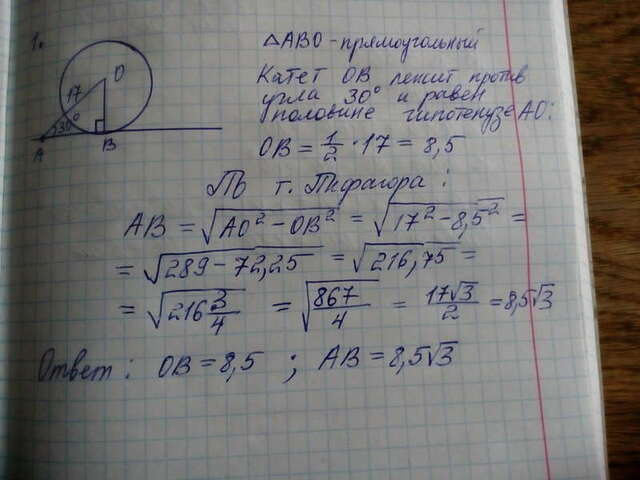 1.
△ABO - прямоугольный
Катет OB лежит против
угла 30° и равен
половине гипотенузе AO:
OB = 1/2 · 17 = 8,5
По т. Пифагора :
AB = √(AO² - OB²) = √(17² - 8,5²) =
= √(289 - 72,25) = √(216,75) =
= √(216 3/4) = √(867/4) = 17√3/2 = 8,5√3
Ответ : OB = 8,5 ; AB = 8,5√3
O
17
30°
A
B